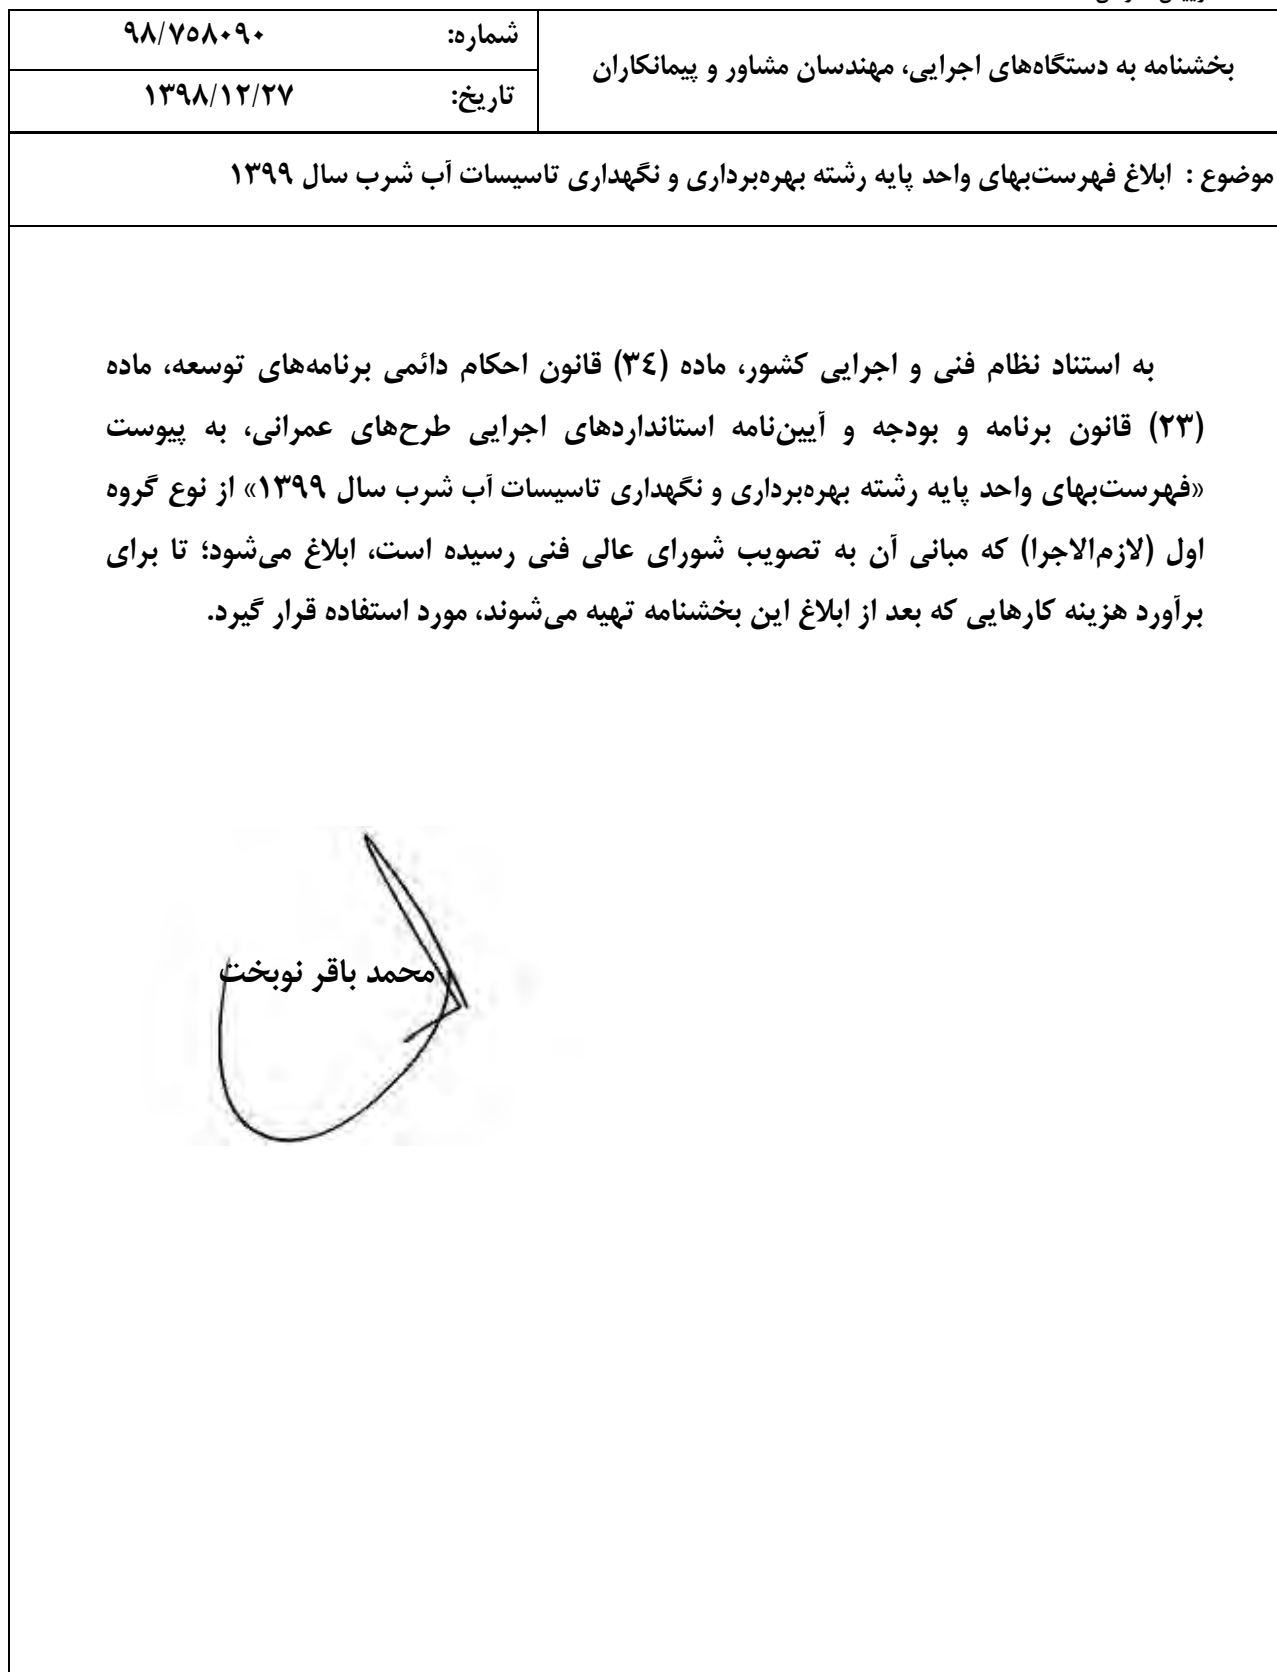 بخشنامه به دستگاه‌های اجرایی، مهندسان مشاور و پیمانکاران
شماره: ۹۸/۷۵۸۰۹۰
تاریخ: ۱۳۹۸/۱۲/۲۷
موضوع : ابلاغ فهرست‌بهای واحد پایه رشته بهره‌برداری و نگهداری تاسیسات آب شرب سال ۱۳۹۹
به استناد نظام فنی و اجرایی کشور، ماده (۳٤) قانون احکام دائمی برنامه‌های توسعه، ماده
(۲۳) قانون برنامه و بودجه و آیین‌نامه استانداردهای اجرایی طرح‌های عمرانی، به پیوست
«فهرست‌بهای واحد پایه رشته بهره‌برداری و نگهداری تاسیسات آب شرب سال ۱۳۹۹» از نوع گروه
اول (لازم‌الاجرا) که مبانی آن به تصویب شورای عالی فنی رسیده است، ابلاغ می‌شود؛ تا برای
برآورد هزینه کارهایی که بعد از ابلاغ این بخشنامه تهیه می‌شوند، مورد استفاده قرار گیرد.
محمد باقر نوبخت